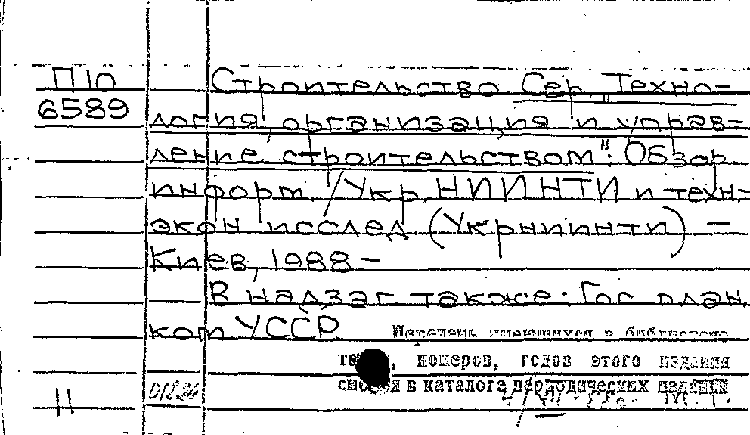 П10
6589
Строительство Сер. "Техно-
логия, организация и управ-
ление строительством": Обзор.
информ. /Укр. НИИНТИ и техн-
экон исслед (Укрниинти) –
Киев, 1988 –
В надзаг также: Гос план.
ком УССР
Перечень имеющихся в библиотеке
номеров, годов этого издания
в каталоге периодических изданий
11